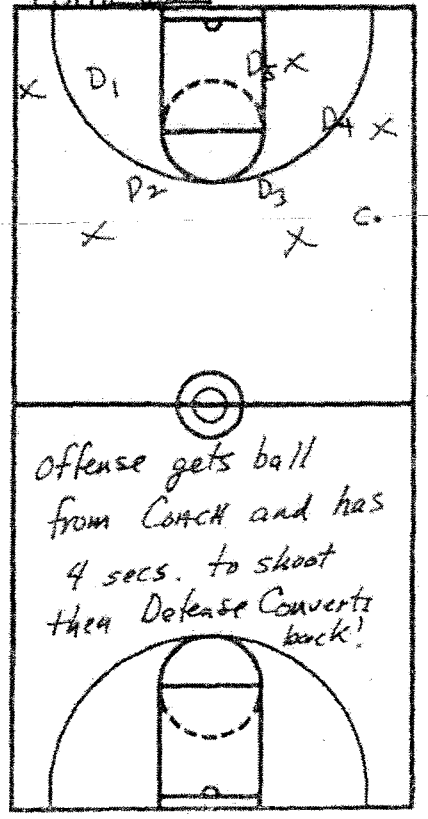 D5 X
D1
X
D4 X
D2 D3
C.
X X
offense gets ball
from COACH and has
4 secs. to shoot
then Defense Converts
back!